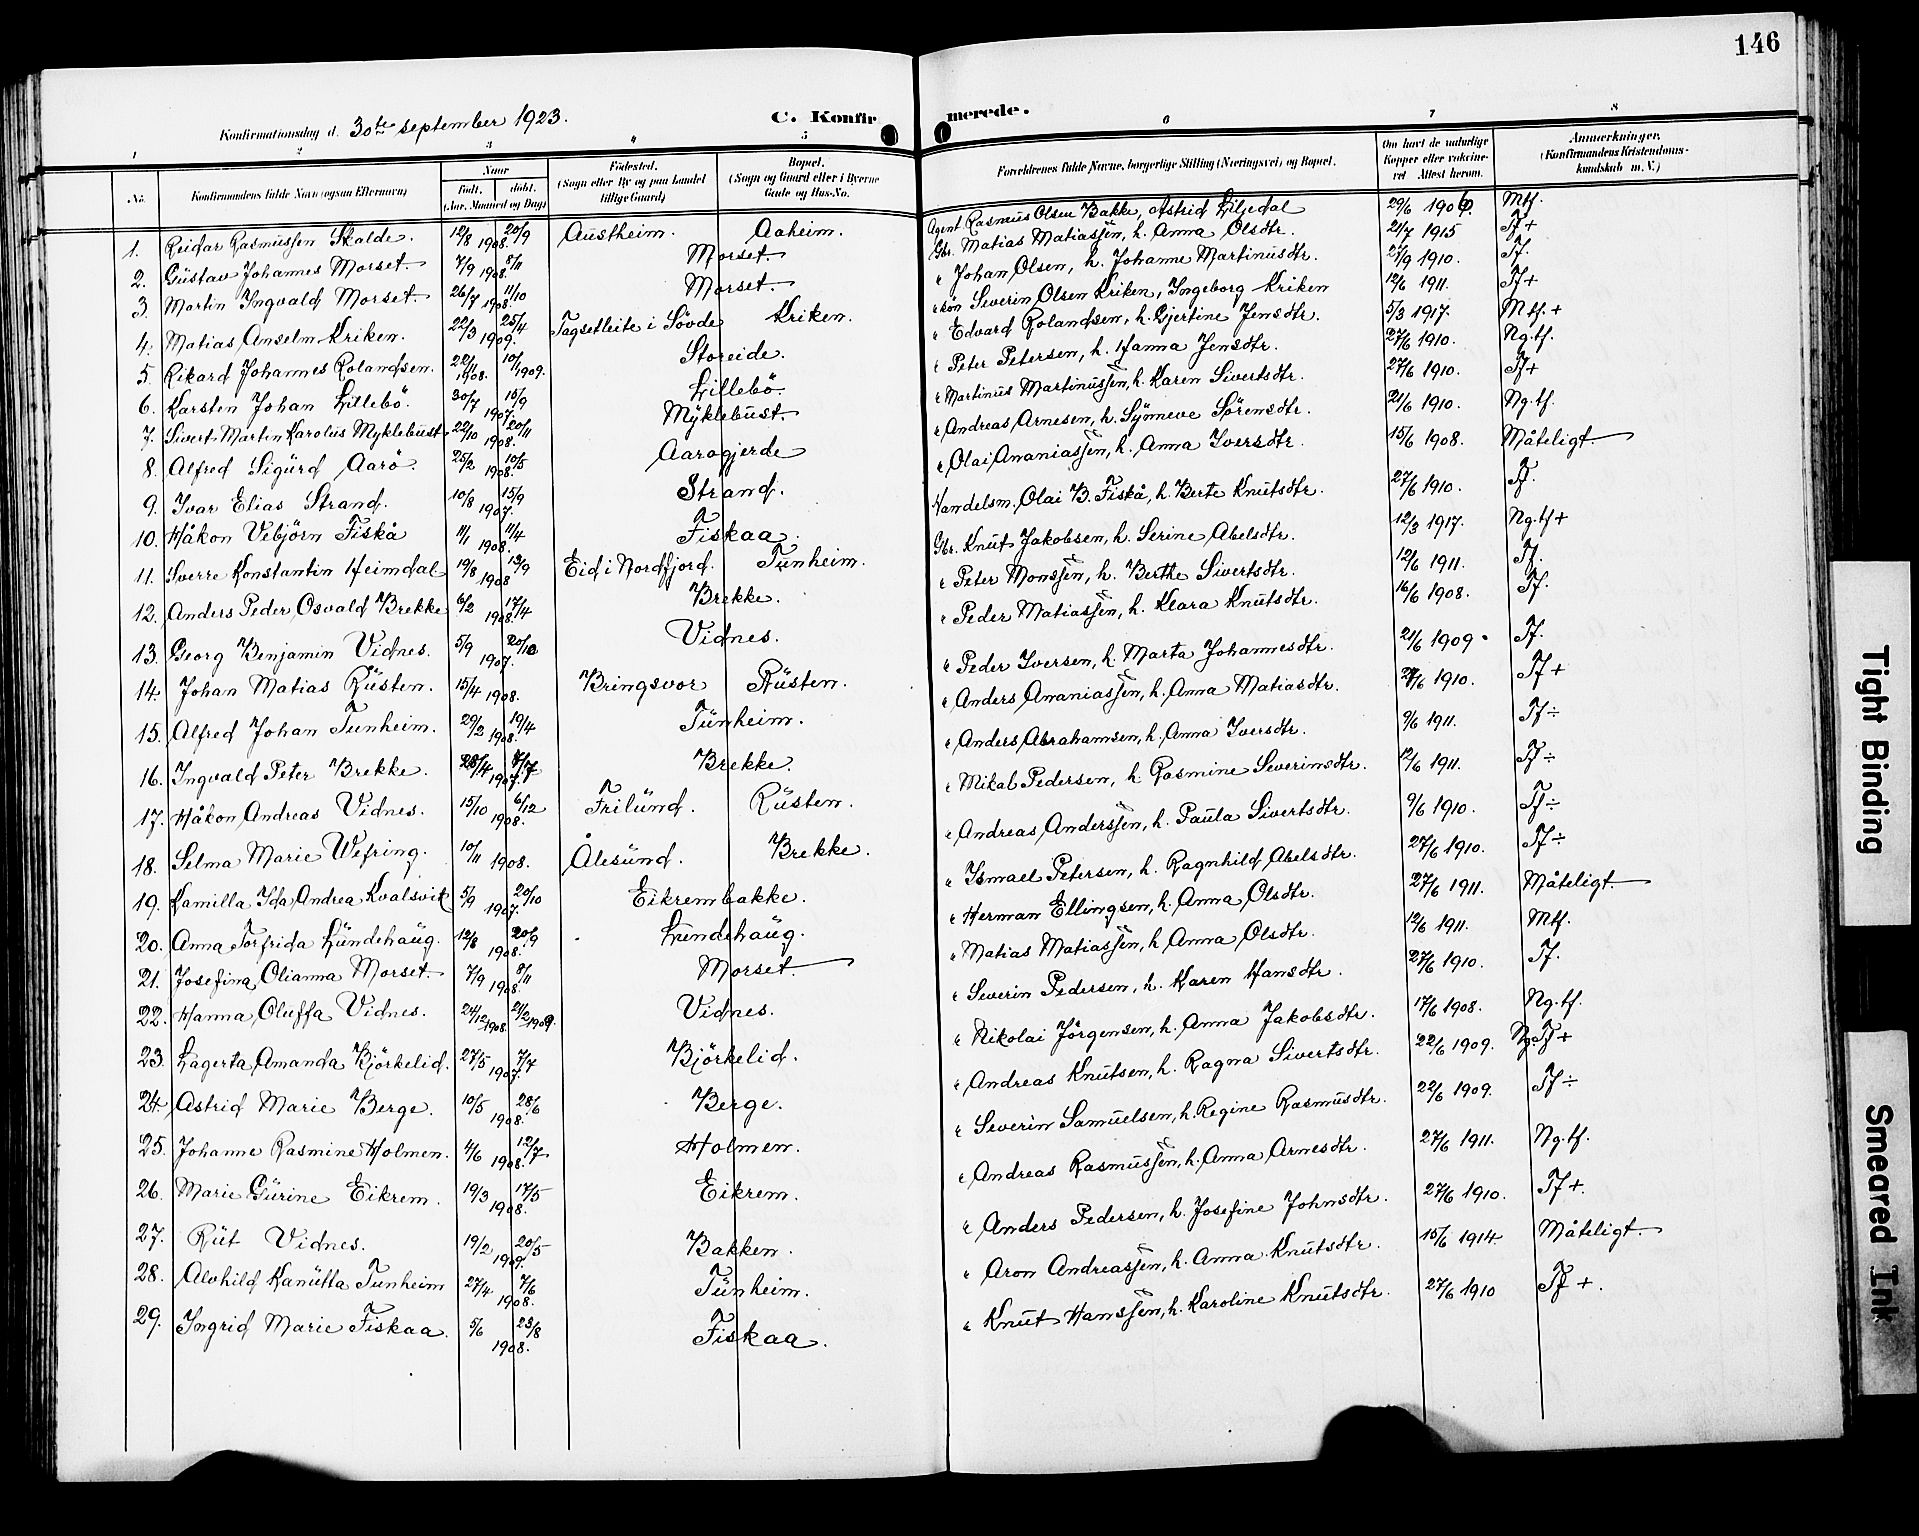 146
Konfirmationsdag d. 30te september 1923. C. Konfir merede.
1 2 3 4 5 6 7 8
No. Konfirmandens fulde Navn (ogsaa Efternavn) Naar født. døbt. (Aar, Maaned og Dag) Fødested. (Sogn eller By og paa Landet tillige Gaard) Bopæl. (Sogn og Gaard eller i Byerne Gade og Hus-No. Forældrenes fulde Navne, borgerlige Stilling (Næringsvei) og Bopæl. Om havt de naturlige Kopper eller vakcineret Attest herom. Anmærkninger. (Konfirmandens Kristendomskundskab m. V.)
1. Reidar Rasmussen Skalde. 12/8 1908. 20/9 Austheim. Aaheim. Agent Rasmus Olsen Bakke, Astrid Liljedal 29/6 Mtf.
2. Gustav Johannes Morset. 7/9 1908. 8/11 Morset Gbr. Matias Matiassen, h. Anna Olsdtr. 21/7 1915 Tf +
3. Martin Ingvald Morset. 26/7 1908. 11/10 Morset " Johan Olsen, h. Johanne Martinusdtr. 27/9 1910. Tf.
4. Matias Anselm Kriken. 22/3 1909. 25/4 Tagsetleite i Sövde Kriken. Severin Olsen Kriken, Ingeborg Kriken 12/6 1911. Tf+
5. Rikard Johannes Rolandsen. 22/11 1908. 10/1 1909. Storeide. " Edvard Rolandsen, h. Gjertine Jensdtr. 5/3 1917. Mtf. +
6. Karsten Johan Lillebö. 30/7 1907. 15/9 Lillebö " Peter Petersen, h. Hanna Jensdtr. 27/6 1910. Ng. tf.
7. Sivert Martin Karolus Myklebust 22/10 1908. 20/11 Myklebust. " Martinus Martinussen, h. Karen Sivertsdtr. 27/6 1910. Tf+
8. Alfred Sigurd Aarö. 25/2 1908. 10/5 Aarögjerde " Andreas Arnesen, h. Synneve Sörensdtr. 21/6 1910. Ng. tf.
9. Ivar Elias Strand. 10/8 1907. 15/9 Strand. " Olai Ananiassen, h. Anna Iversdtr. 15/6 1908. Måteligt
10. Håkon Vebjörn Fiskå 11/1 1908. 11/4 Fiskaa. Handelsm. Olai B. Fiskå, h. Berte Knutsdtr. 27/6 1910. Tf.
11. Sverre Konstantin Heimdal 19/8 1908 13/9 Eid i Nordfjord. Tunheim. Gbr. Knut Jakobsen, h. Serine Abelsdtr. 12/3 1917. Ng. tf +
12. Anders Peder Osvald Brekke 6/2 1908. 17/4 Brekke. " Peter Monssen, h. Berthe Sivertsdtr. 12/6 1911. Tf.
13. Georg Benjamin Vidnes. 5/9 1907. 20/10 Vidnes. " Peder Matiassen, h. Klara Knutsdtr. 16/6 1908. Tf.
14. Johan Matias Rusten. 15/4 1908. Bringsvor Rusten. " Peder Iversen, h. Marta Johannesdtr. 21/6 1909. Tf.
15. Alfred Johan Tunheim. 29/2 1908. 19/4 Tunheim. " Anders Ananiassen, h. Anna Matiasdtr. 1910. Tf +
16. Ingvald Peter Brekke. 1907. Brekke. " Anders Abrahamsen, h. Anna Iversdtr. 9/6 1911. Tf ÷
17. Håkon Andreas Vidnes. 15/10 1908. 6/12 Frilund. Rusten. " Mikal Pedersen, h. Rasmine Severinsdtr. 12/6 1911. Tf ÷
18. Selma Marie Wefring. 10/11 1908. Ålesund. Brekke. " Andreas Anderssen, h. Paula Sivertsdtr. 9/6 1910. Tf ÷
19. Kamilla Ida Andrea Kvalsvik 5/9 1907. 20/10 Eikrembakke. " Ismael Petersen, h. Ragnhild Abelsdtr. 27/6 1910. Tf ÷
20. Anna Torfrida Lundehaug. 12/8 1908. 20/9 Lundehaug. " Herman Ellingsen, h. Anna Olsdtr. 27/6 1911. Måteligt.
21. Josefina Olianna Morset. 7/9 1908. 8/11 Morset. " Matias Matiassen, h. Anna Olsdtr. 12/6 1911. Mtf.
22. Hanna Oluffa Vidnes. 24/12 1908. 21/2 1909. Vidnes. " Severin Pedersen, h. Karen Hansdtr. 27/6 1910. Tf.
23. Lagerta Amanda Björkelid. 27/5 1907. 7/7 Björkelid. " Nikolai Jörgensen, h. Anna Jakobsdtr. 17/6 1908. Ng. tf.
24. Astrid Marie Berge. 10/5 1908. 28/6 Berge. " Andreas Knutsen, h. Ragna Sivertsdtr. 22/6 1909. Tf +
25. Johanne Rasmine Holmen. 4/6 1908. 12/7 Holmen. " Severin Samuelsen, h. Regine Rasmusdtr. 22/6 1909. Tf ÷
26. Marie Gurine Eikrem. 19/3 1908. 17/5 Eikrem. " Andreas Rasmussen, h. Anna Arnesdtr. 27/6 1911. Ng. tf.
27. Rut Vidnes. 19/2 1909. 20/5 Bakken. " Anders Pedersen, h. Josefine Johnsdtr. 27/6 1910. Tf +.
28. Alvhild Kanutta Tunheim 27/4 1908. 7/6 Tunheim. " Aron Andreassen, h. Anna Knutsdtr. 15/6 1914. Måteligt.
29. Ingrid Marie Fiskaa. 5/6 1908. 23/8 Fiskaa. " Knut Hanssen, h. Karoline Knutsdtr. 27/6 1910 Tf +.
Tight Binding
Smeared Ink